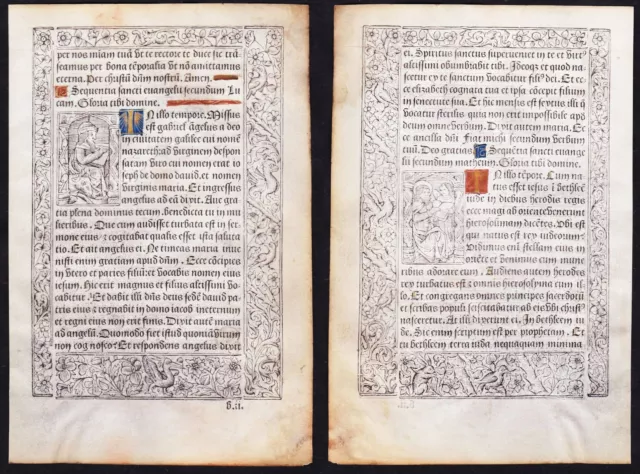 per nos miam tuā vt te rectore te duce sic trā
seamus per bona tēporalia vt nō amittamus
eterna. Per christū dn̄m nostrū. Amen.
Sequentia sancti euangelii secundum Lu
cam. Gloria tibi domine.
IN illo tempore. Missus
est gabriel āgelus a deo
in ciuitatem galilee cui nomē
nazareth ad virginem despon
satam viro cui nomen erat io
seph de domo dauid. et nomen
virginis maria. Et ingressus
angelus ad eā dixit. Aue gra
tia plena dominus tecum. benedicta tu in mu
lieribus. Que cum audisset turbata est in ser
mone eius et cogitabat qualis esset ista saluta
tio. Et ait angelus ei. Ne timeas maria inue
nisti enim gratiam apud dn̄m. Ecce cōcipies
in vtero et paries filiū: et vocabis nomen eius
iesum. Hic erit magnus et filius altissimi vo
cabitur. Et dabit illi dn̄s sedē dauid pa
tris eius et regnabit in domo iacob ineternum
et regni eius non erit finis. Dixit autē maria
ad angelū. Quomodo fiet istud quoniā virum
non cognosco: Et respondens angelus dixit
b.ii.
ei. Spiritus sanctus superueniet in te et virt9
altissimi obumbrabit tibi. Ideoqz et quod na
scetur ex te sanctum vocabitur fili9 dei. Et ec
ce elizabeth cognata tua et ipsa cōcepit filium
in senectute sua. Et hic mensis est sextus illi q̄
vocatur sterilis quia non erit impossibile apu
deum omne verbum. Dixit autem maria. Ec
ce ancilla dn̄i fiat michi secundum verbum
tuū. Deo gratias. Sequētia sancti euange
lii secundum matheum. Gloria tibi domine.
IN illo tēpore. Cum na
tus esset iesus ī bethleē
iude in diebus herodis regis
ecce magi ab oriēte venerunt
hierosolimam dicētes. Vbi est
qui natus est rex iudeorum:
Vidimus enī stellam eius in
oriēte et venimus cum mune
ribus adorare eum. Audiens autem herodes
rex turbatus est et omnis hierosolyma cum il
lo. Et congregans omnes principes sacerdotū
et scribas populi sciscitabatur ab eis vbi christ9
nasceretur. At illi dixerunt ei. In bethleem iu
de. Sic enim scriptum est per prophetam. Et
tu bethleem terra iuda nequaquam minima